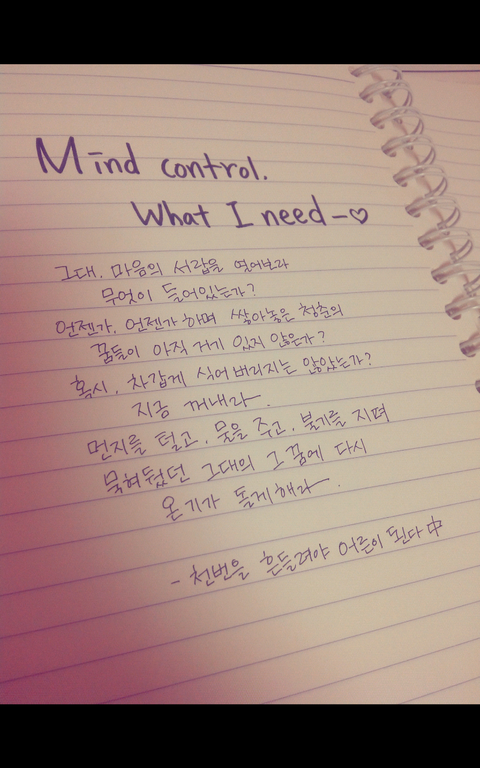 Mind control.
What I need-♡
그대, 마음의 서랍을 열어보라
무엇이 들어있는가?
언젠가, 언젠가 하며 쌓아놓은 청춘의
꿈들이 아직 거기 있지 않은가?
혹시, 차갑게 식어버리지는 않았는가?
지금 꺼내라.
먼지를 털고, 물을 주고, 불기를 지펴
묵혀뒀던 그대의 그 꿈에 다시
온기가 돌게해라.
- 천번을 흔들려야 어른이 된다 中